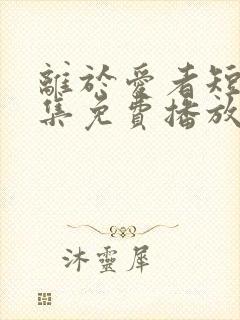 離於愛者短
集免費播放
沐靈犀